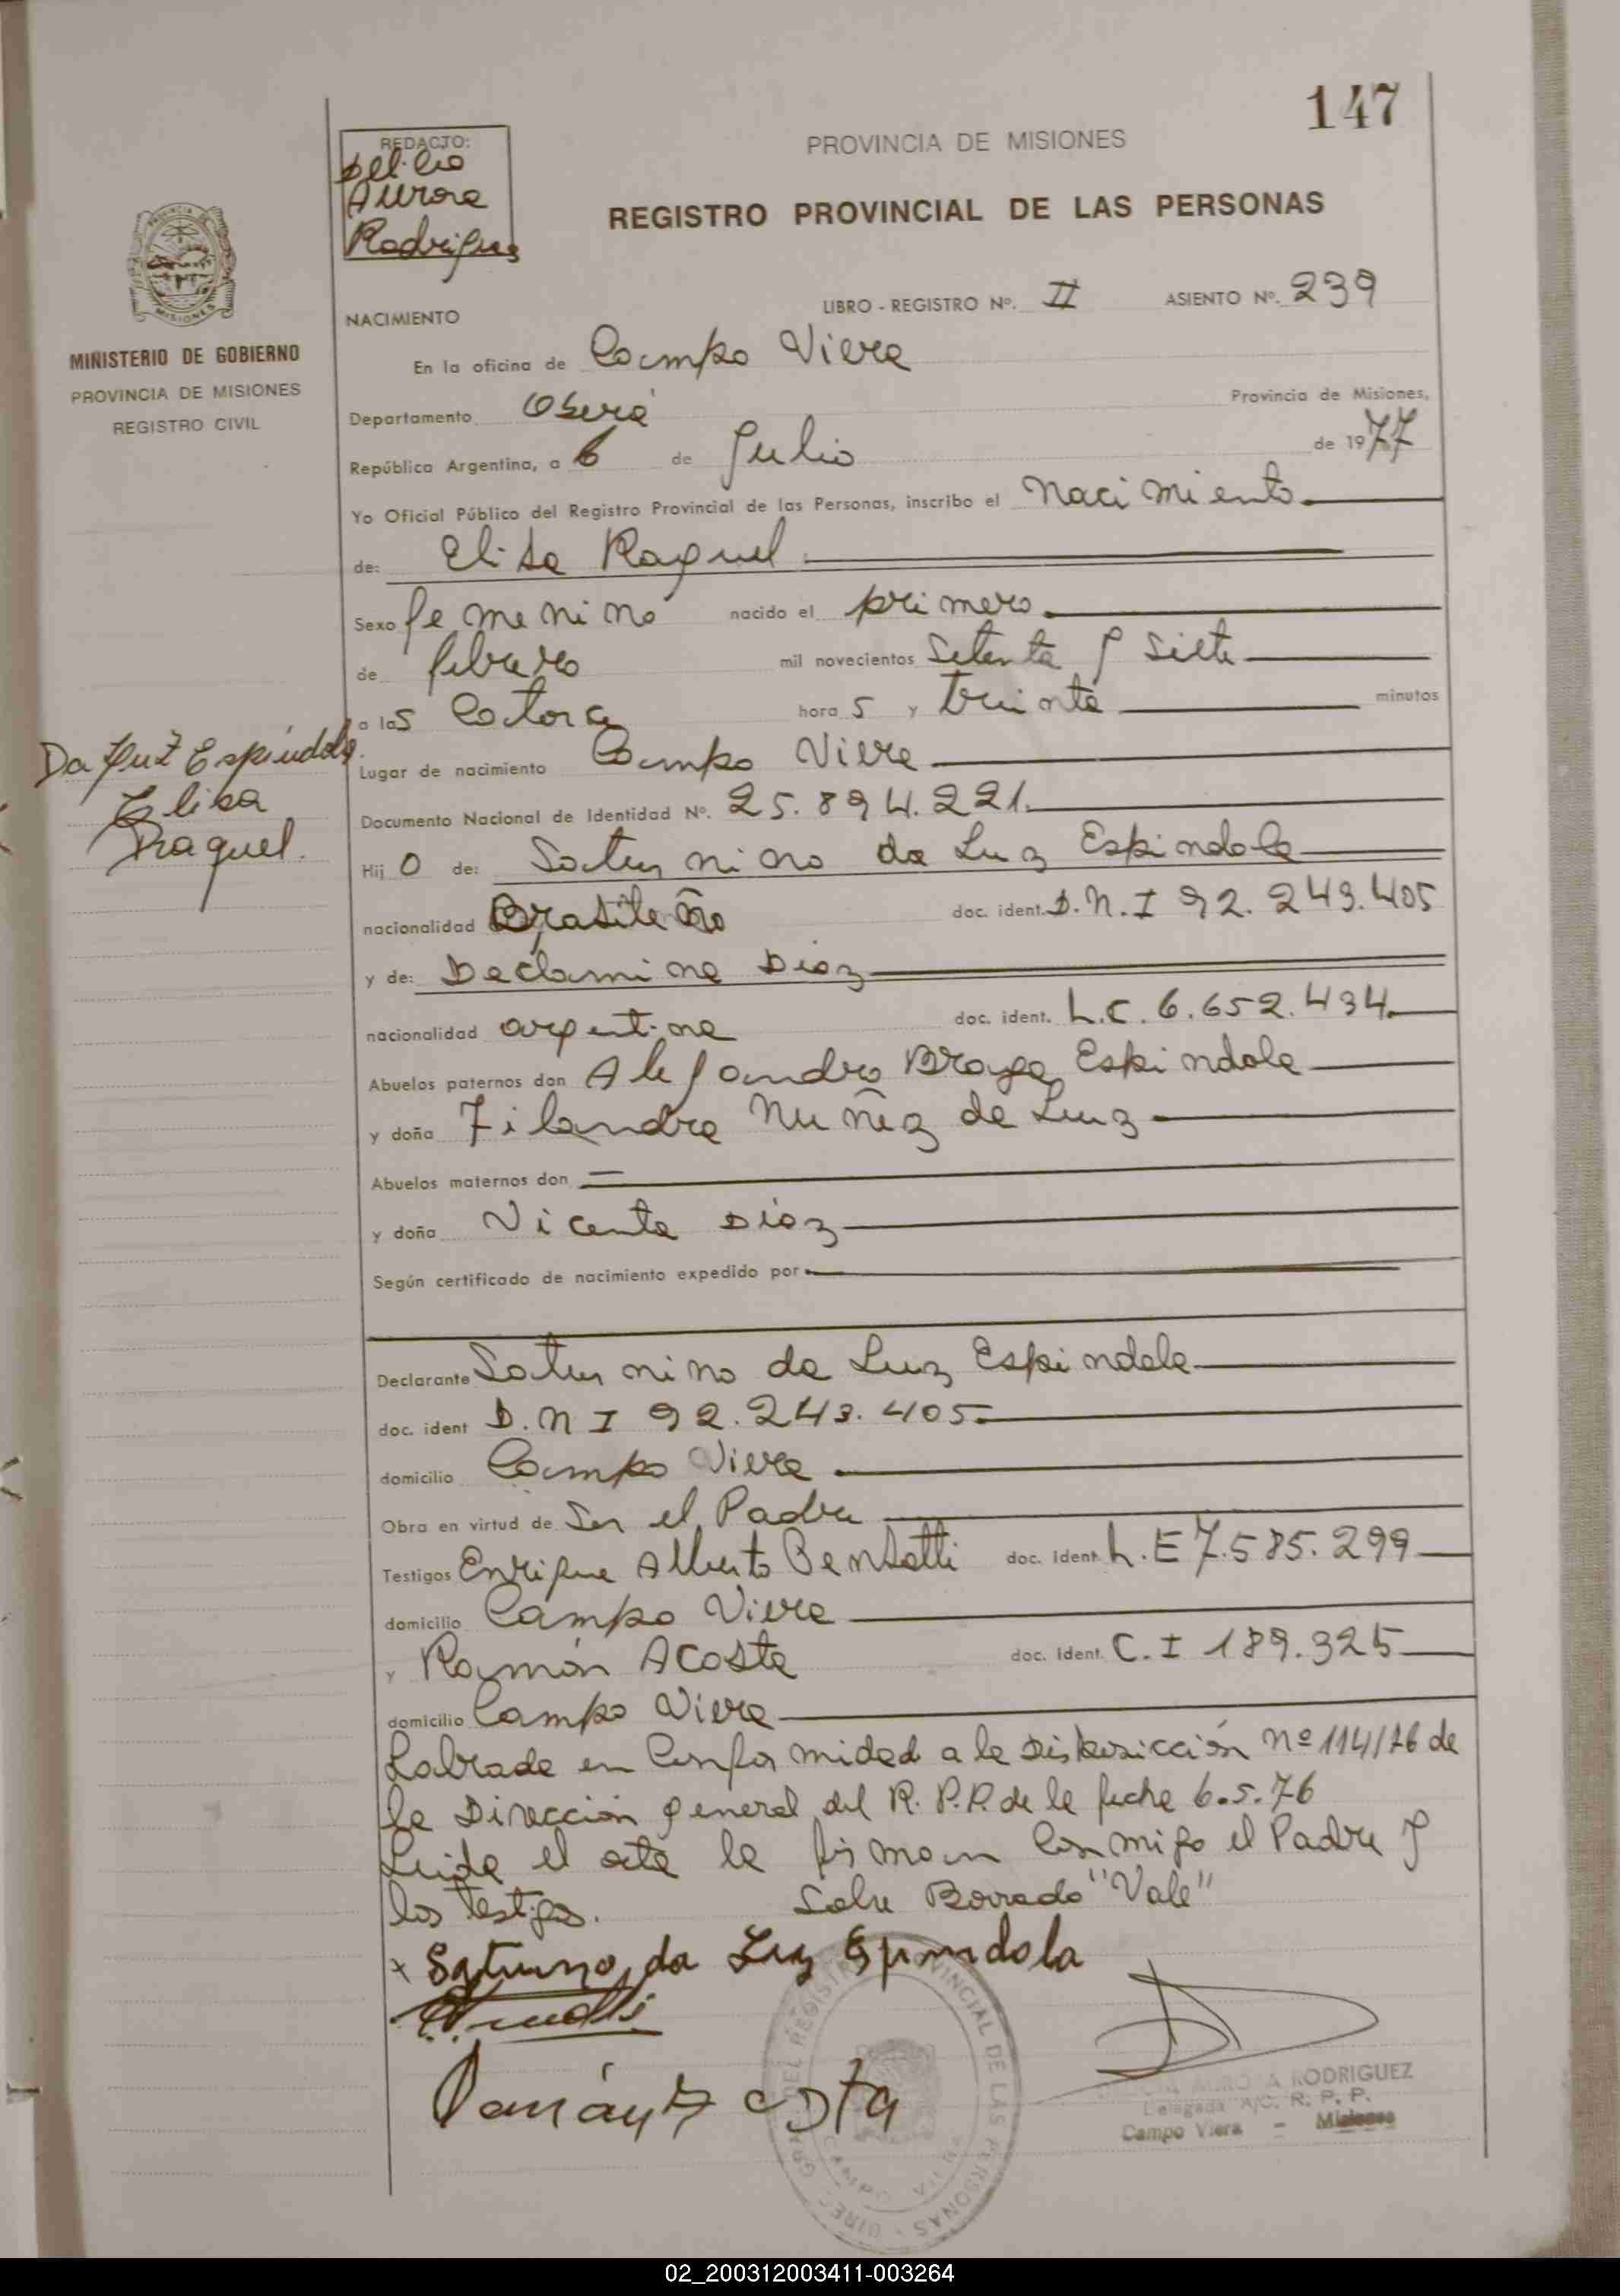 147
REDACTO:
Delicia
Aurora
Rodriguez
PROVINCIA DE MISIONES
REGISTRO PROVINCIAL DE LAS PERSONAS
MINISTERIO DE GOBIERNO
PROVINCIA DE MISIONES
REGISTRO CIVIL
NACIMIENTO
LIBRO - REGISTRO Nº. II ASIENTO Nº. 239
En la oficina de Campo Viera
Departamento Oberá Provincia de Misiones,
República Argentina, a 6 de Julio de 1977
Yo Oficial Público del Registro Provincial de las Personas, inscribo el Nacimiento
de: Elisa Raquel
Sexo femenino nacido el primero
de febrero mil novecientos Setenta y Siete
a las Catorce hora s y treinta minutos
Da Luz Espíndola
Elisa
Raquel.
Lugar de nacimiento Campo Viera
Documento Nacional de Identidad Nº. 25.894.221.
Hij o de: Saturnino da Luz Espindola
nacionalidad Brasileño doc. ident. D.N.I 92.243.405
y de: Declamina Diaz
nacionalidad argentina doc. ident. L.C. 6.652.434
Abuelos paternos don Alejandro Braga Espindola
y doña Filandra Nuñez de Luz
Abuelos maternos don =
y doña Vicenta Díaz
Según certificado de nacimiento expedido por
Declarante Saturnino da Luz Espindola
doc. ident D.N I 92.243.405
domicilio Campo Viera
Obra en virtud de Ser el Padre
Testigos Enrique Alberto doc. ident. L.E 7.585.299
domicilio Campo Viera
y Ramón Acosta doc. ident. C.I 189.325
domicilio Campo Viera
Labrada en Conformidad a la Disposicción nº 114/76 de
la Dirección general del R.P.P. de la fecha 6.5.76
Leida el acta la firman Conmigo el Padre y
los testigos. Sobre Borrado "Vale"
+ Saturno da Luz Espindola
Ramón Acosta
AURORA RODRIGUEZ
Delegada A/C. R. P. P.
Campo Viera - Misiones
02_200312003411-003264